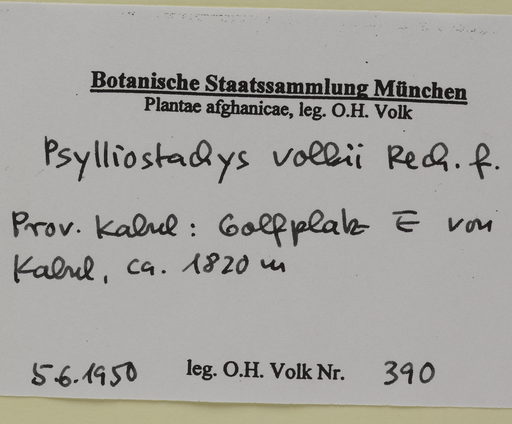 Botanische Staatssammlung München
Plantae afghanicae, leg. O.H. Volk
Psylliostachys volkii Rech. f.
Prov. Kabul: Golfplatz E von
Kabul, ca. 1820 m
5.6.1950 leg. O.H. Volk Nr. 390